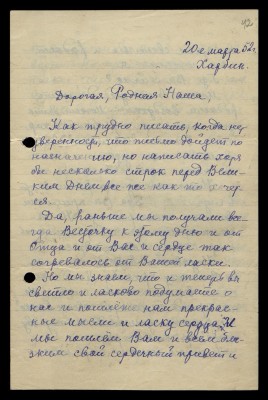 42
20го марта 52г.
Харбин.
Дорогая, Родная Наша,
Как трудно писать, когда не
уверенность, что письмо дойдет по
назначению, но написать хотя
бы несколько строк перед Вели-
ким Днем все же так то хочет-
ся.
Да, раньше мы получали во-
гда Весточку к этому дню и от
Отца и от Вас и сердце так
согревалось от Вашей ласки.
Но мы знаем, что и теперь Вы
светло и ласково подумаете о
нас и пошлете нам прекрас-
ные мысли и ласку сердца. И
мы пошлем Вам и всем бли-
зким свой сердечный привет и